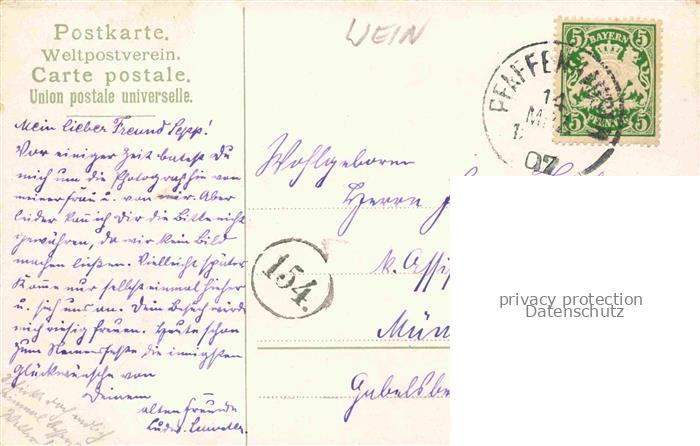 Postkarte.
Weltpostverein.
Carte postale.
Union postale universelle.
WEIN
5 BAYERN 5
5 PFENNIG 5
PFAFFEN
14
07
Mein lieber Freund Sepp!
Vor einiger Zeit batest Du
mich um die Photographie von
meiner Frau u. von mir. Aber
leider kann ich Dir die Bitte nicht
gewähren, da wir kein Bild
machen ließen. Vielleicht später
Komme nur selbst einmal hieher
u. sieh uns an. Dein Besuch würde
mich riesig freuen. Heute schon
zum Namensfeste die innigsten
Glückwünsche von
Deinem
alten Freunde
Ludw.
Wohlgeboren
Herrn
k. Assis
Mün
Gabelsbe
154.
privacy protection
Datenschutz